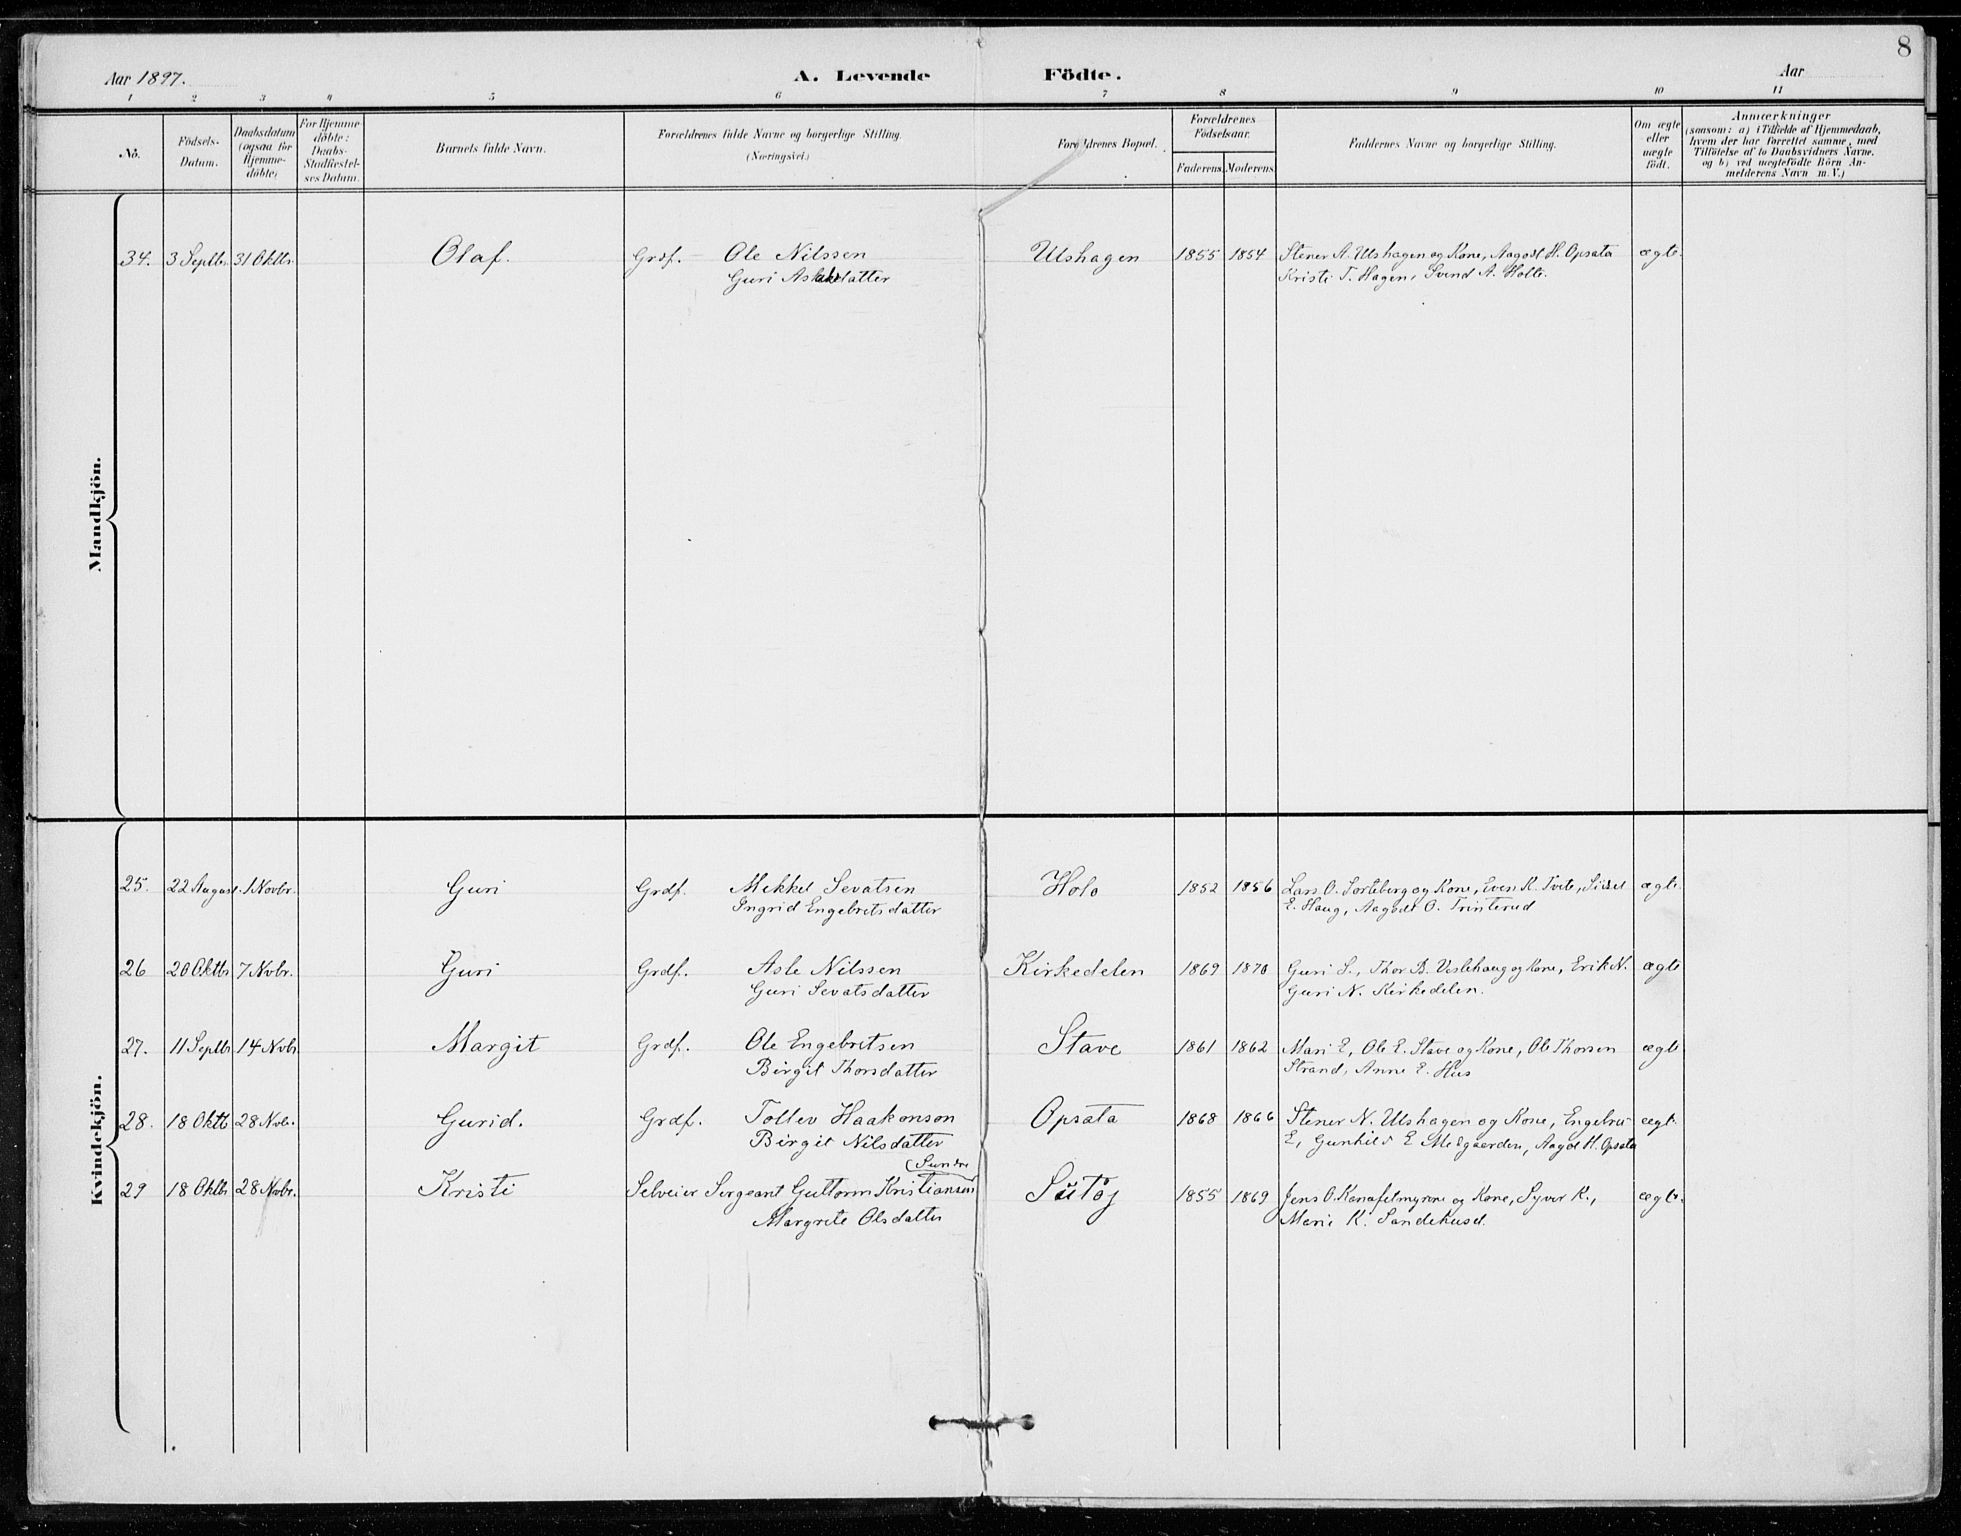 8
Aar 1897. A. Levende Födte. Aar
1 2 3 4 5 6 7 8 9 10 11
No.
Födsels-Datum.
Daabsdatum (ogsaa for Hjemme-döbte)
For Hjemme-döbte: Daabs-Stadfæstel-ses Datum.
Barnets fulde Navn.
Forældrenes fulde Navne og borgerlige Stilling. (Næringsvei.)
Forældrenes Bopæl.
Forældrenes Födselsaar.
Faderens. Moderens.
Faddernes Navne og borgerlige Stilling.
Om ægte eller uægte födt.
Anmærkninger
(saasom: a) i Tilfælde af Hjemmedaab,
hvem der har forrettet samme, med
Tilföielse af to Daabsvidners Navne.
og b) ved uægtefödte Börn An-
melderens Navn m. V.)
Mandkjön.
34. 3 Septbr. 31 Oktbr. Olaf. Grdf. Ole Nilssen Ulshagen 1855 1854 Stener A. Ulshagen og Kone, Aagodt H. Opsata ægte.
Guri Aslaksdatter Kristi T. Hagen, Svend A. Holte.
Kvindekjön.
25. 22 August. 1 Novbr. Guri Grdf. Mikkel Sevatsen Holo 1852 1856 Lars O. Sorteberg og Kone, Even K. Tveto, Sidsel ægte.
Ingrid Engebretsdatter E. Haug, Aagodt O. Trinterud
26 20 Oktbr 7 Nvbr. Guri Grdf. Asle Nilssen Kirkedelen 1869 1870 Guri S., Thor B. Veslehaug og Kone, Erik N. ægte
Guri Sevatsdatter Guri N. Kirkedelen.
27. 11 Septbr 14 Nvbr Margit Grdf. Ole Engebretsen Stave 1861 1862 Mari E, Ole E. Stave og Kone, Ole Thorsen ægte
Birgit Thorsdatter Strand, Anne E. Hus
28. 18 Oktb 28 Nvbr. Gurid. Grdf. Tollev Haakonson Opsata 1868 1866 Stener N. Ulshagen og Kone, Engebre- ægt.
Birgit Nilsdatter E, Gunhild E Medgaarden, Aagot H. Opsata
(Sundre
29 18 Oktbr 28 Nvbr. Kristi Selveier Sergeant Guttorm Kristiansen 1855 1869 Jens O. Kanafetmyrene og Kone, Syver K., ægte.
Margrete Olsdatter Marie K. Sandehused.